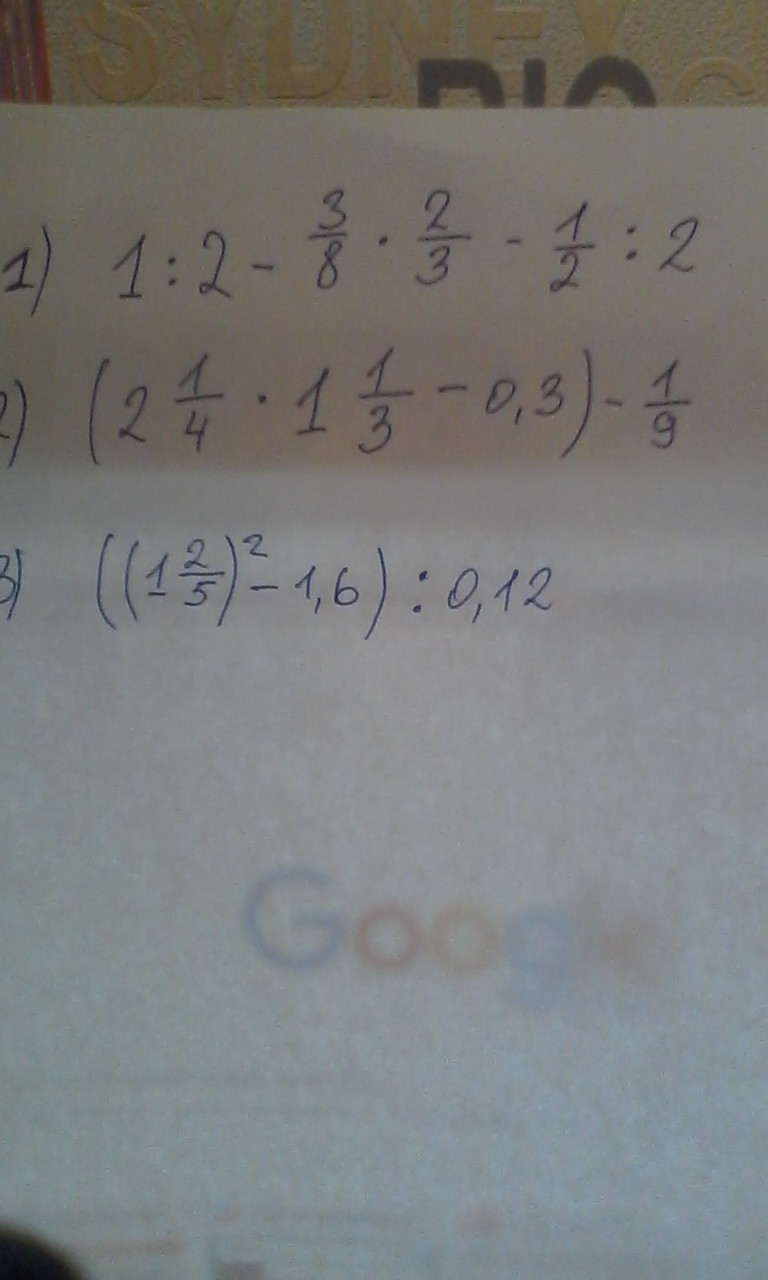 SYDNEY
1) 1 : 2 - 3/8 · 2/3 - 1/2 : 2
2) (2 1/4 · 1 1/3 - 0,3) - 1/9
3) ((1 2/5)² - 1,6) : 0,12
Google